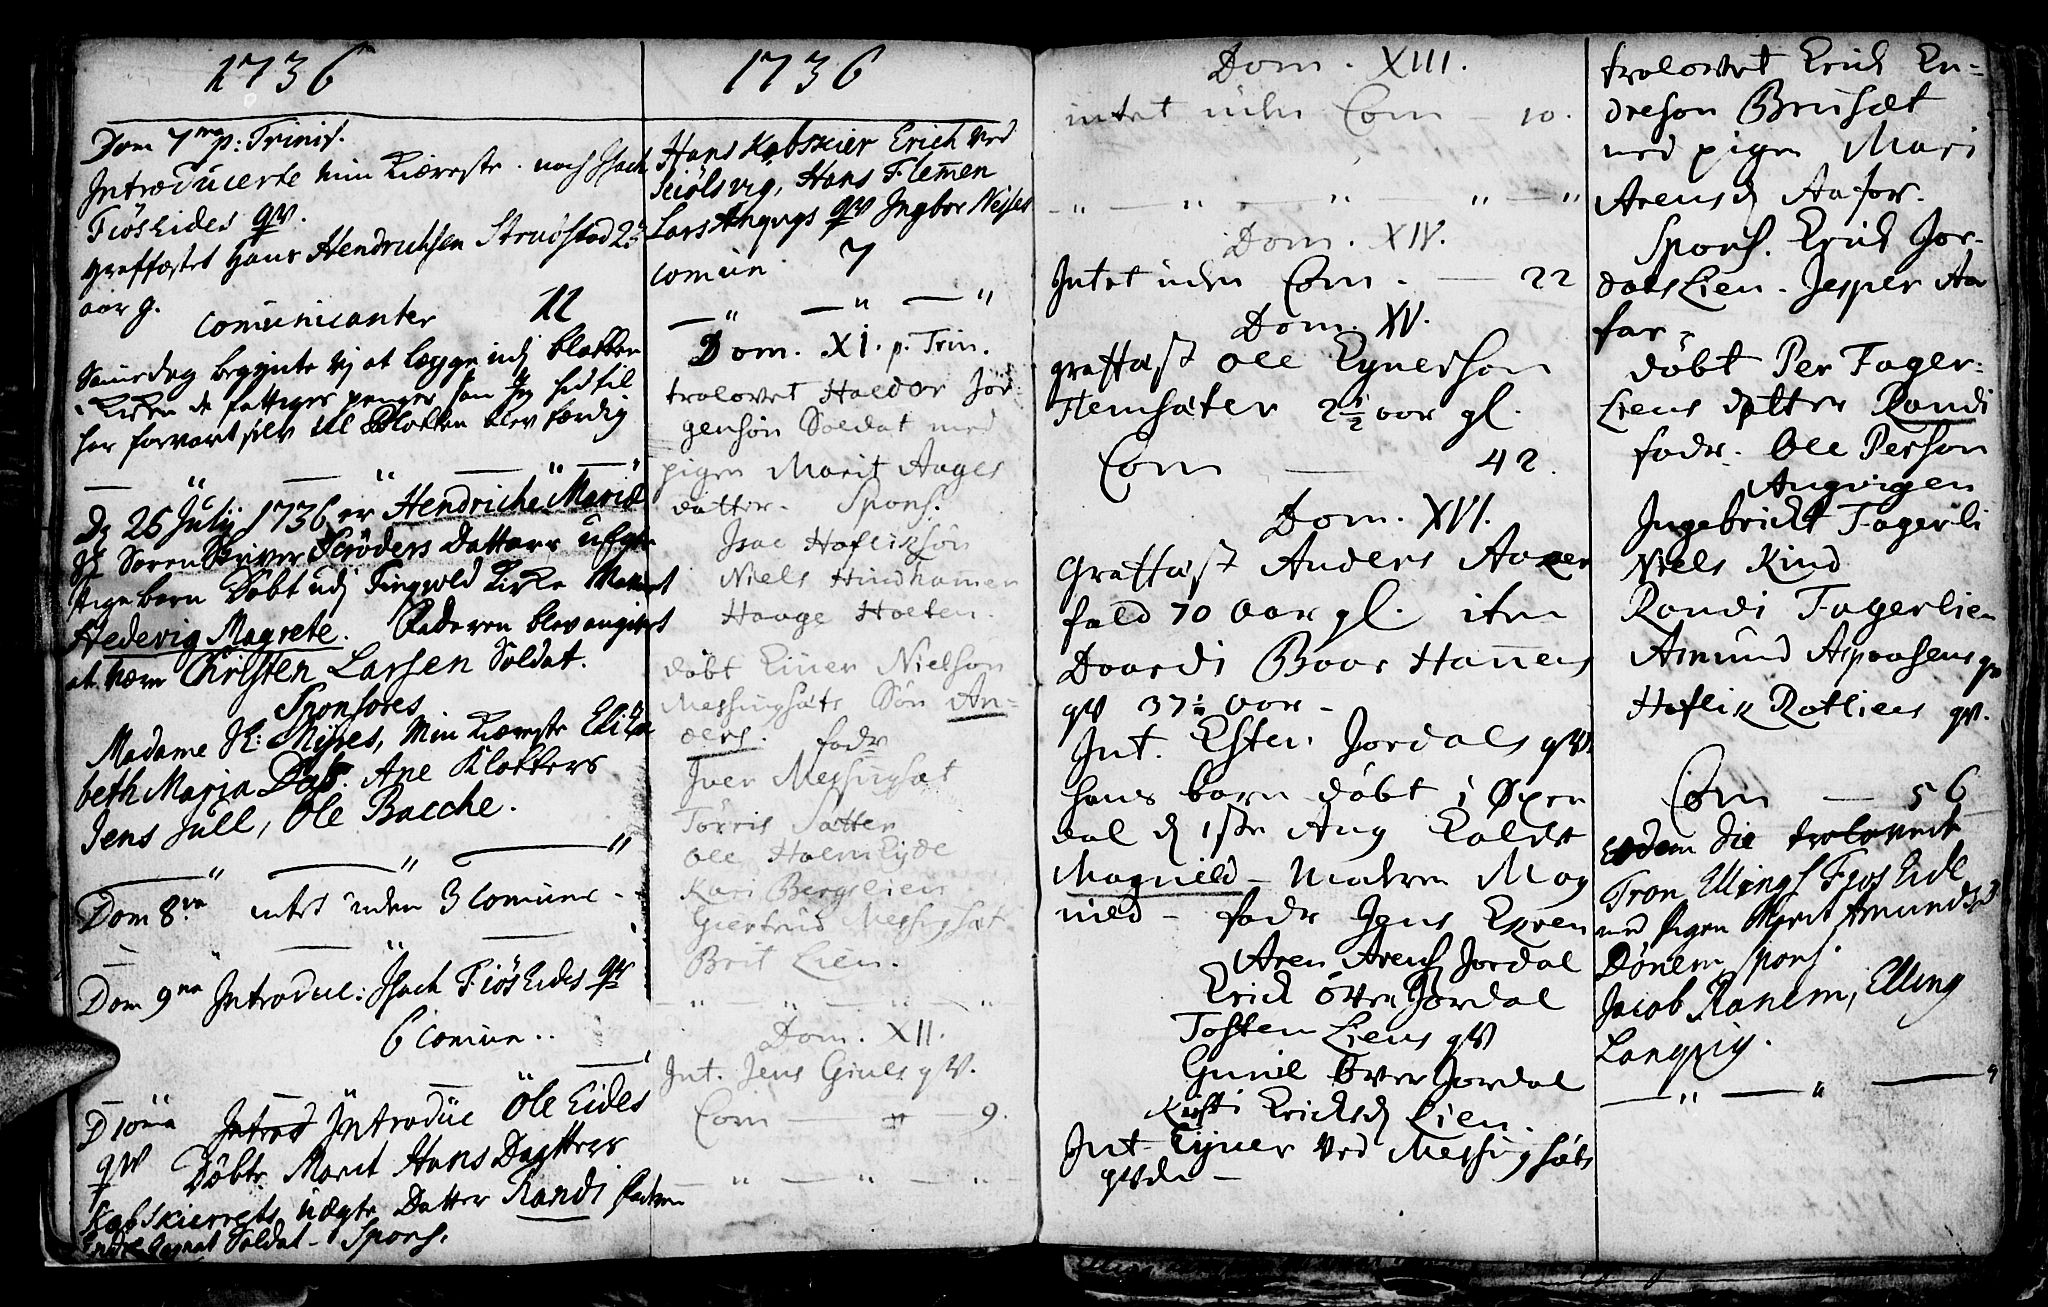 1736
Dom 7ma p: Trinit.
Introducerte min Kiæreste. noch Isach
Fiøs Eides qv.
graffæstet Hans Hendrichsen Strudstad 2
aar g.
Comunicanter 11
Samedag begynte vj at lægge udj Blokken
i Kirken de fattiges penger som Jeg hid til
har forvart selv til Blokken blev færdig
D 26 Julij 1736 er Hendriche Mariæ
Soren Skriver Schöders Datters uEgte
Pige barn Döbt udj Tingvold Kirke
Hedevig Magrete. Faderen blev angivet
at være Christen Larsen Soldat.
Sponsores
Madame Nisses, Min Kiæreste Eliza
beth Maria Dass. Ane Klokkers
Jens Jull, Ole Bacche.
Dom 8va intet uden 3 Comunc
Dom 9na Introduc: Isach Fiös Eides qv
6 Comun..
D 10ma Introduc Ole Eides
qv Döbte Marit Hans Datters
Kabskierrets udgte Datter Randi Fadren
Soldat - Spons.
1736
Hans Kabskier Erich ved
Kiölsvig, Hans Flemen
Lars Angvigs qv Ingbor Neses
comun. 7
Dom. XI. p. Trin.
trolovet Haldor Jör
gensön Soldat med
pigen Marit Aages
datter. Spons.
Isac Hoflikson
Niels Hindhamer
Haage Holten.
döbt Einer Nielson
Messingsæts Sön An-
ders. fadr
Iver Messingsæt
Törris Sætter
Ole Holm Eyde
Kari Bergslien
Giertrud Messingsæt
Brit Lien.
Dom. XII.
Int. Jens Giuls qv.
Com — 9.
Dom. XIII.
intet uden Com - 10.
Dom. XIV.
Intet uden Com. - 22
Dom. XV.
graffæst Ole Eynerson
Flemsæter 2½ aar gl.
Com — 42.
Dom. XVI.
Graffæst Anders Aaker
fald 70 aar gl. itm
Daardi Boar Hanens
qv 37½ aar -
Int. Esten Jordals qv.
hans barn döbt i Öxen
dal d 1ste Aug Kaldt
Magnild - Modren Mag
nild - fadr Jens Exren
Aren Arens Jordal
Erich Öttre Jordal
Tosten Liens qv
Gunil Över Jordal
Kirsti Ericksd Lien.
Int. Eyner ved Messingsæts
qvde -
trolovet Erich En-
dreson Brusæt
med pigen Mari
Arensd Aafar.
Spons. Erich Jor-
dals Lien. Jesper Aa
far -
döbt Per Fager-
Liens datter Randi
fadr. Ole Person
Angvigen
Ingebricht Fagerli
Niels Kind
Randi Fagerlien
Asmund Aspaasens qv
Hoflik Rotliens qv.
Com — 56
Eodem die trolovede
Tron Ellings Fiös Eide
med Pigen Marit Amundsd
Dönem Spons.
Jacob Ranem, Elling
Langvig.